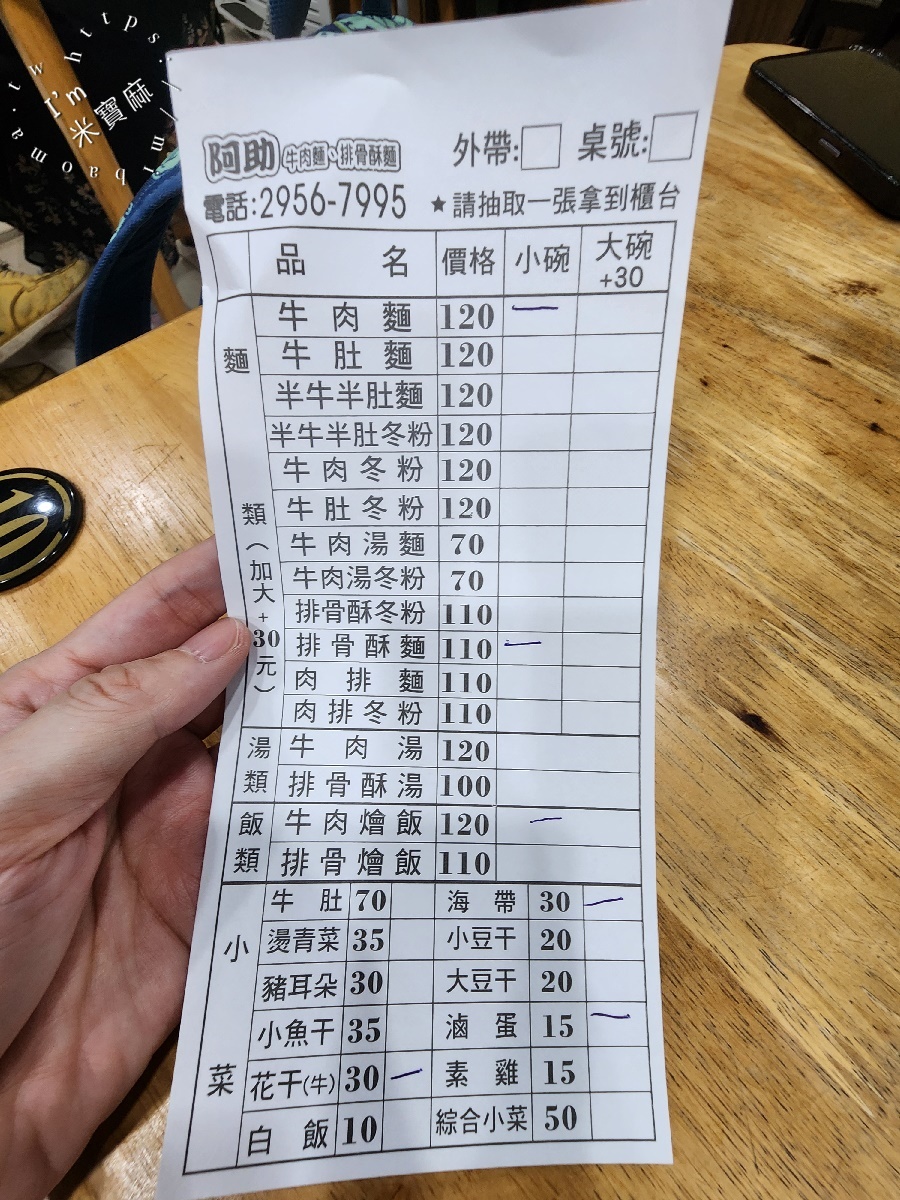 https://mibaoma.tw
I'm
米寶麻
阿助 牛肉麵、排骨酥麵 外帶: 桌號:
電話:2956-7995 ★請抽取一張拿到櫃台
品名 價格 小碗 大碗+30
麵類(加大+30元)
牛肉麵 120 一
牛肚麵 120
半牛半肚麵 120
半牛半肚冬粉 120
牛肉冬粉 120
牛肚冬粉 120
牛肉湯麵 70
牛肉湯冬粉 70
排骨酥冬粉 110
排骨酥麵 110 一
肉排麵 110
肉排冬粉 110
湯類
牛肉湯 120
排骨酥湯 100
飯類
牛肉燴飯 120 一
排骨燴飯 110
小菜
牛肚 70 海帶 30 一
燙青菜 35 小豆干 20
豬耳朵 30 大豆干 20
小魚干 35 滷蛋 15 一
花干(牛) 30 一 素雞 15
白飯 10 綜合小菜 50
10